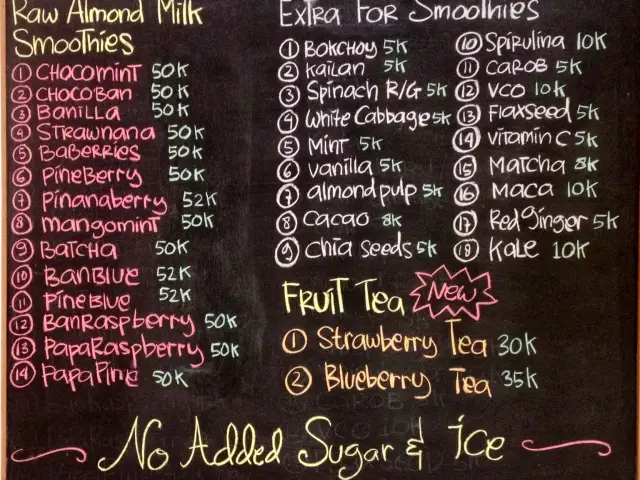 Raw Almond Milk
Smoothies
1 CHOCOMINT 50K
2 CHOCOBAN 50K
3 Banilla 50K
4 STRAWNANA 50K
5 BaBERRIES 50K
6 PineBerry 50K
7 Pinanaberry 52K
8 mangomint 50K
9 BaTCHa 50K
10 BanBlue 52K
11 PineBlue 52K
12 BanRaspberry 50K
13 PapaRaspberry 50K
14 PapaPine 50K
Extra For Smoothies
1 BOKCHOY 5K
2 Kailan 5K
3 Spinach R/G 5K
4 White Cabbage 5K
5 Mint 5K
6 vanilla 5K
7 almond pulp 5K
8 Cacao 8K
9 Chia Seeds 5K
10 Spirulina 10K
11 CaROB 5K
12 VCO 10K
13 Flaxseed 5K
14 vitamin C 5K
15 Matcha 8K
16 Maca 10K
17 Red Ginger 5K
18 Kale 10K
FRUIT Tea New
1 Strawberry Tea 30K
2 Blueberry Tea 35K
No Added Sugar & ice